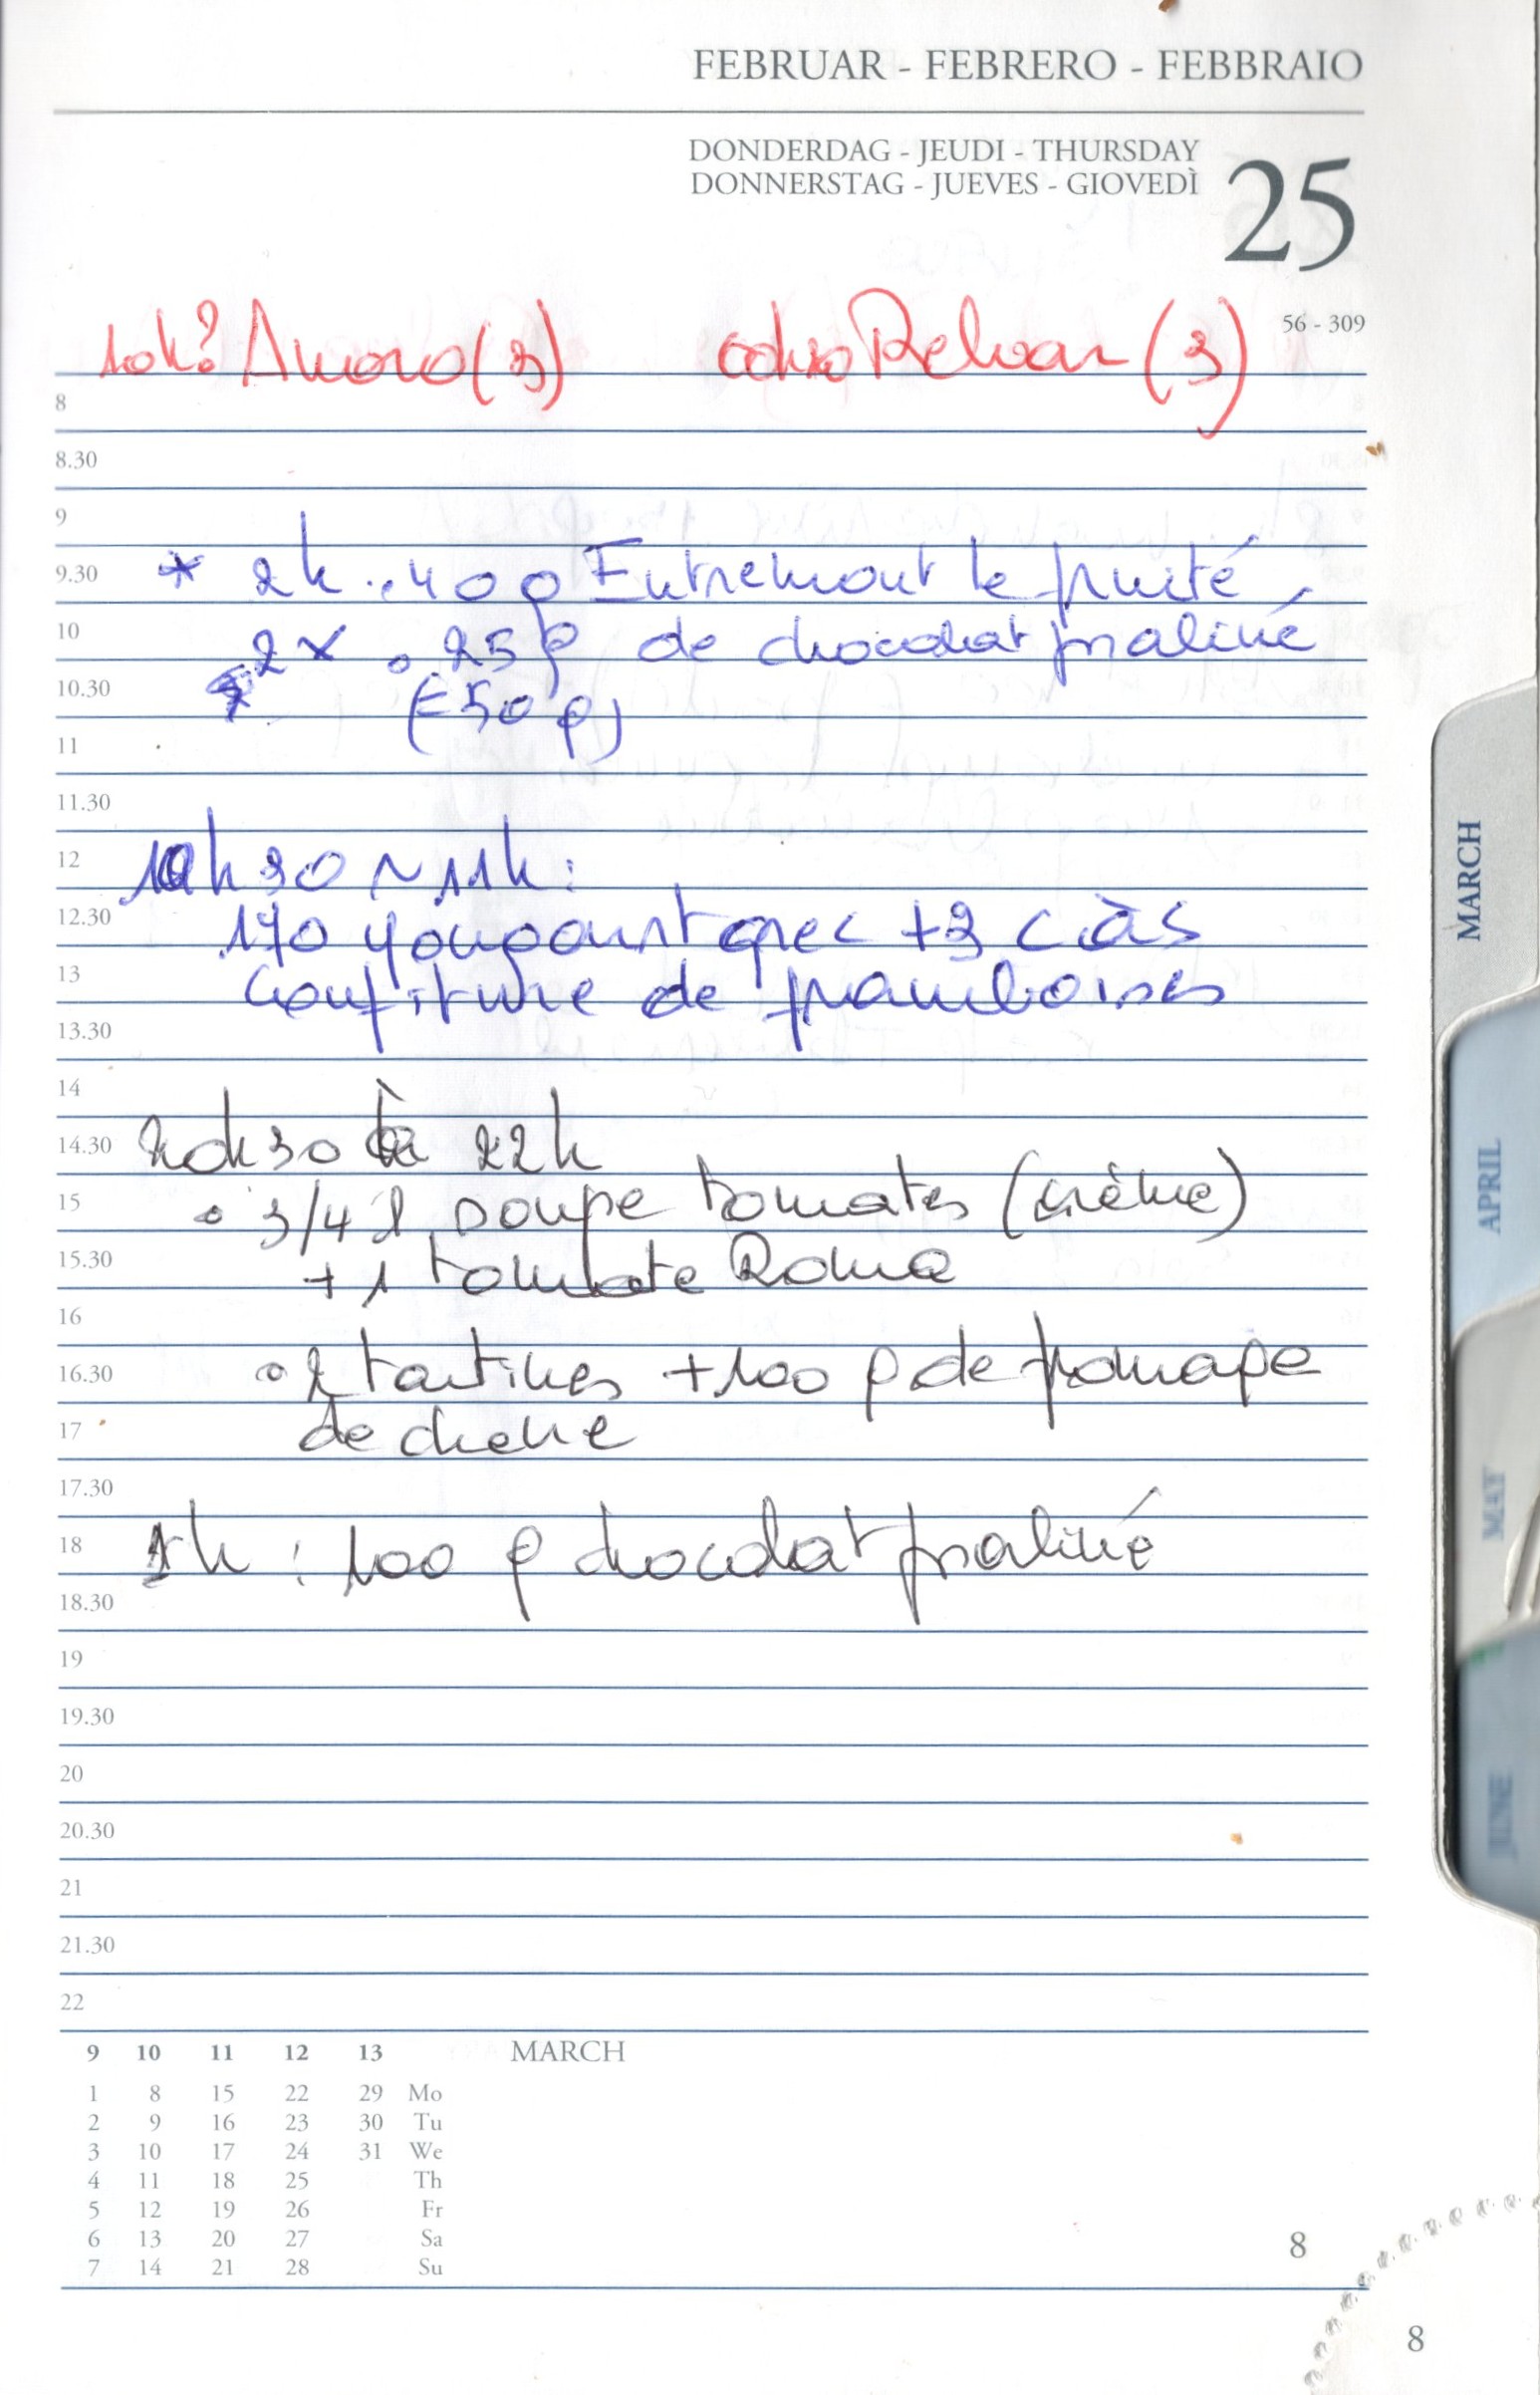 FEBRUAR - FEBRERO - FEBBRAIO
DONDERDAG - JEUDI - THURSDAY
DONNERSTAG - JUEVES - GIOVEDÌ
25
56 - 309
10h? (3) (3)
8
8.30
9
9.30 * 2h : 400 Entremont le fruité
10 2x 25g de chocolat praliné
10.30 (= 50 g)
11
11.30
12 10h30 ~ 11h :
12.30 170 yougourt grec + 3 c à s
13 Confiture de framboises
13.30
14
14.30 20h30 à 22h
15 • 3/4 l soupe tomates (crème)
15.30 + 1 tomate Roma
16
16.30 • 2 tartines + 100 g de fromage
17 de chèvre
17.30
18 1h : 100 g chocolat praliné
18.30
19
19.30
20
20.30
21
21.30
22
9 10 11 12 13 MARCH
1 8 15 22 29 Mo
2 9 16 23 30 Tu
3 10 17 24 31 We
4 11 18 25 Th
5 12 19 26 Fr
6 13 20 27 Sa
7 14 21 28 Su
8
8
MARCH
APRIL
MAY
JUNE